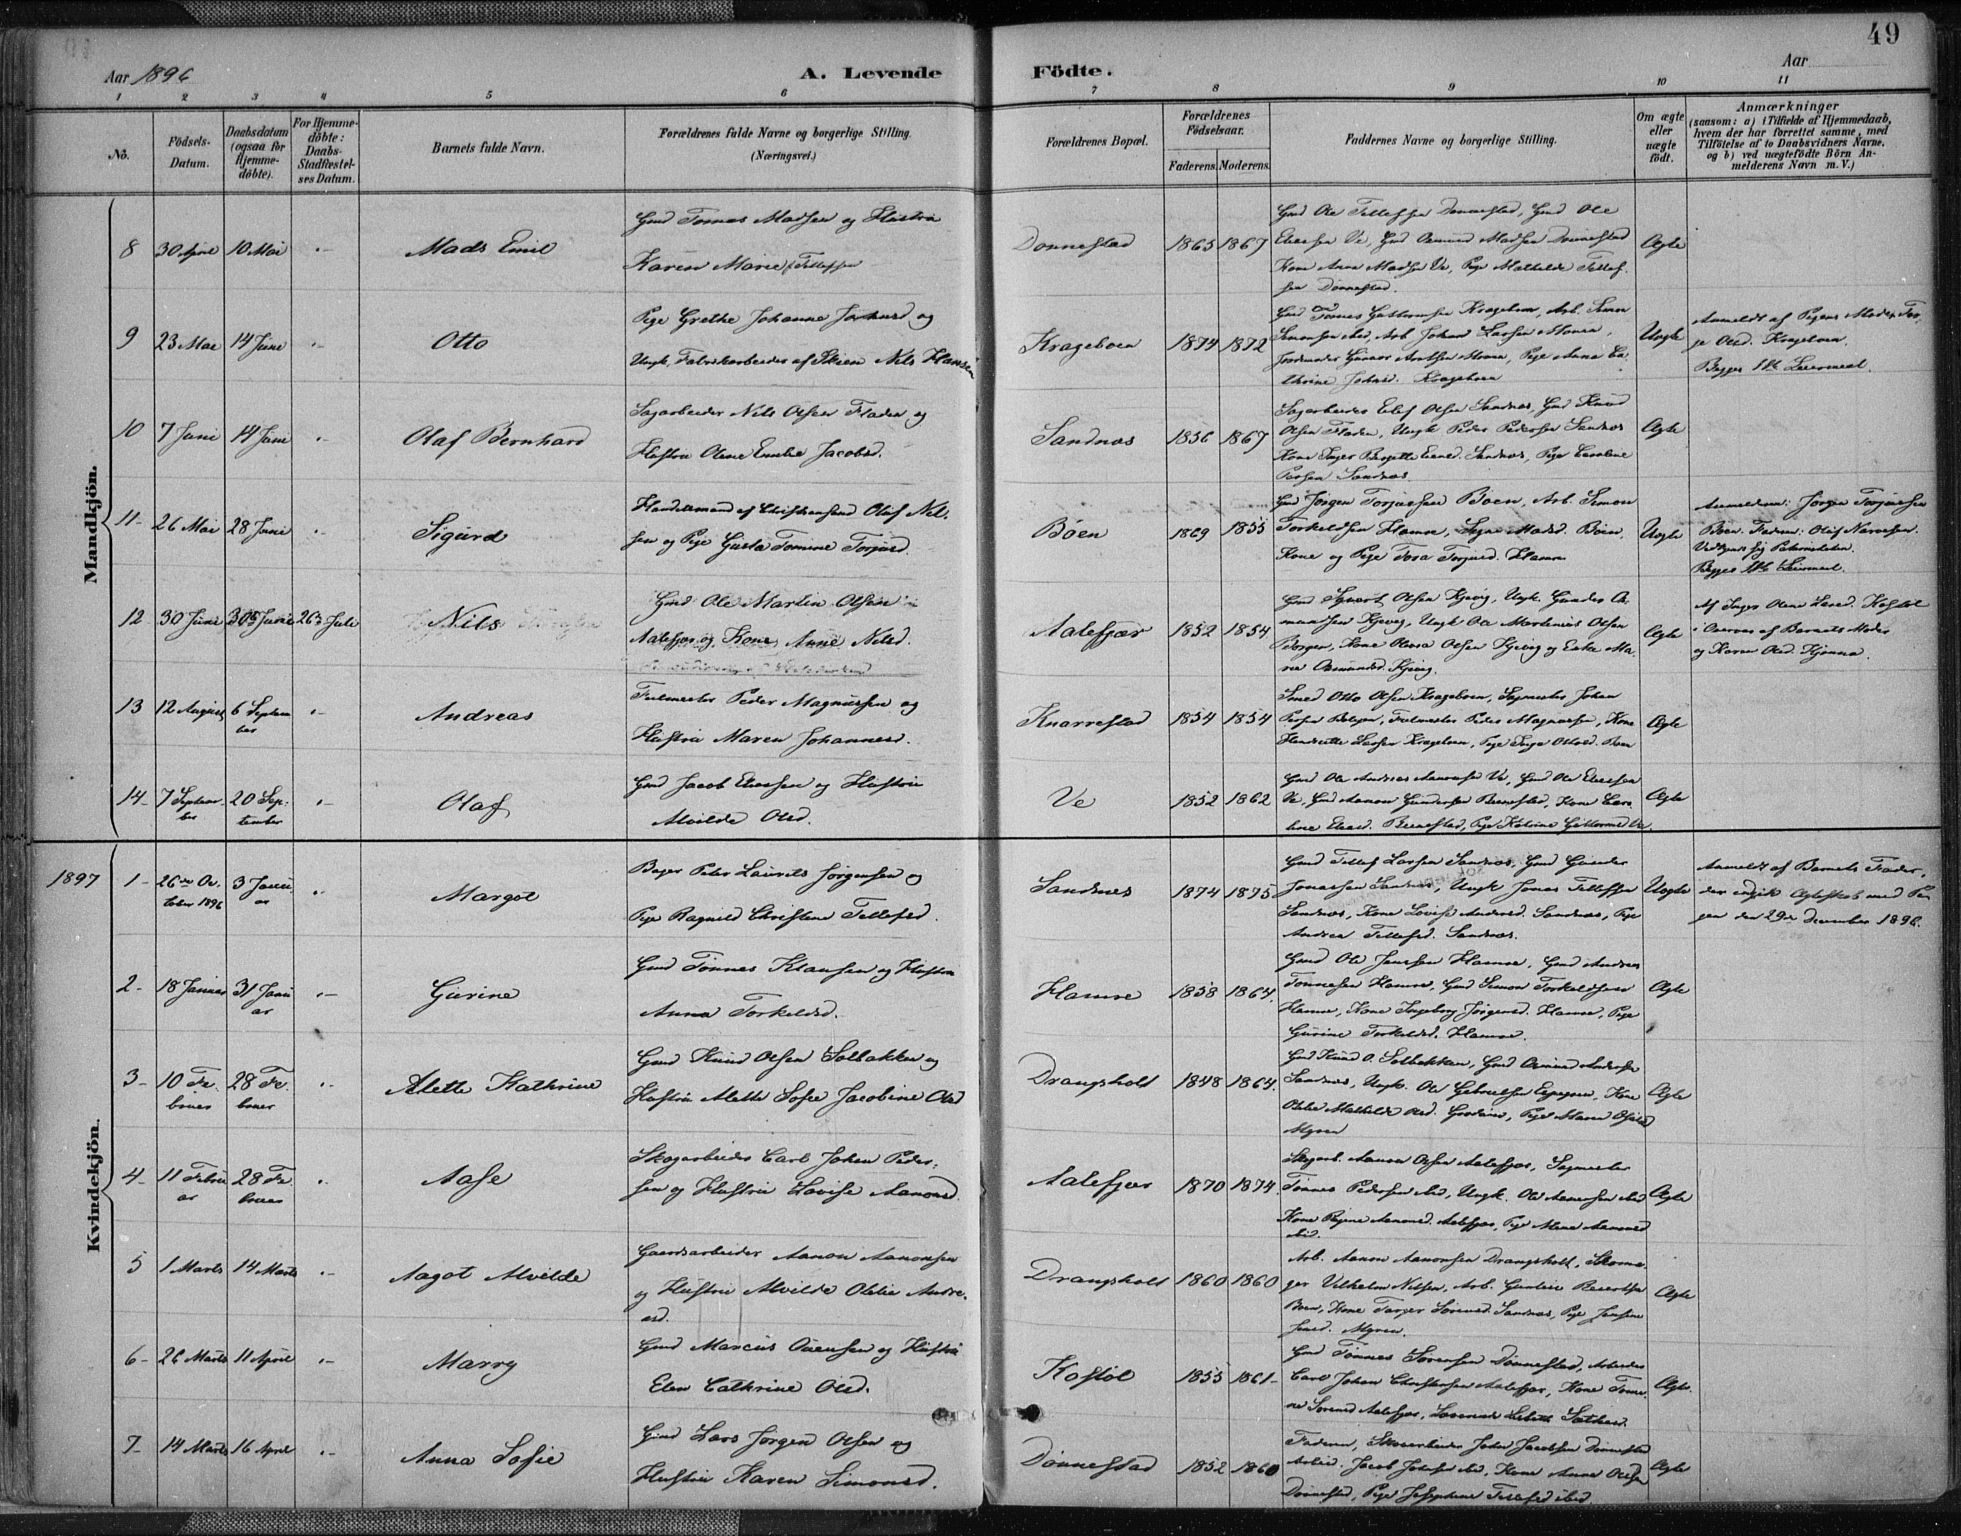 49
Aar 1896
A. Levende Födte.
Aar
1 2 3 4 5 6 7 8 9 10 11
No.
Födsels-Datum.
Daabsdatum (ogsaa for Hjemme-döbte).
For Hjemme-döbte: Daabs-Stadfæstel-ses Datum.
Barnets fulde Navn.
Forældrenes fulde Navne og borgerlige Stilling.
(Næringsvei.)
Forældrenes Bopæl.
Forældrenes Födselsaar.
Faderens. Moderens.
Faddernes Navne og borgerlige Stilling.
Om ægte eller uægte födt.
Anmærkninger
(saasom: a) i Tilfælde af Hjemmedaab,
hvem der har forrettet samme, med
Tilföielse af to Daabsvidners Navne.
og b) ved uægtefödte Börn An-
melderens Navn m. V.)
Mandkjön.
8 30 April 10 Mai Mads Emil
Gmd Tomas Madsen og Hustru
Karen Marie Tellefsen
Donnestad 1865 1867
Gmd Ole Tellefsen Donnestad, Gmd Ole
Ve, Gmd Osmund Madsen Donnestad
Kone Anna Madsen Ve, Pige Mathilde Tellef-
sen Donnestad.
Ægte
9 23 Mai 14 Juni Otto
Pige Grethe Johanne og
Ungk. Fabrikarbeider af Skien Nils Hansen
Krageboen 1874 1872
Gmd Tønnes Guttormsen Krageboen, Arb. Simon
Simonsen ibd, Arb Johan Larsen Monen,
Gunnar Arntsen Moen, Pige Anne Ca-
thrine Johnsd. Krageboen
Uægte
Anmeldt af Pigens Moder Tor-
je Olsd. Krageboen.
Begges 1ste Leiermaal.
10 7 Juni 14 Juni Olaf Bernhard
Sagarbeider Nils Olsen Fladen og
Hustru Olene Emilie Jacobsd.
Sandnæs 1856 1867
Sagarbeider Elef Olsen Sandnæs, Gmd Knud
Olsen Fladen, Ungk Peder Pedersen Sandnæs
Kone Inger Birgitte Sandnæs, Pige Caroline
Sandnæs
Ægte
11 26 Mai 28 Juni Sigurd
Handelsmand af Christiansand Olaf Nil-
sen og Pige Gusta Tomine Torjusd.
Böen 1869 1855
Gmd Jörgen Torjussen Boen, Arb. Simon
Torkeldsen Hamre, Signe Madsd. Böen
Kone og Pige Tora Torjusd. Hamre
Uægte
Anmelderen: Jörgen Torjussen
Boen. Faderen: Olaf
Vedgaar sig Paterniteten.
Begges 1ste Leiermaal.
12 30 Juni 30 Juni 26 Juli Nils
Gmd Ole Martin Olsen
Aalefjær og Kone Anne Nilsd.
Aalefjær 1852 1854
Gmd Sjvert Olsen Kjevig, Ungk. Gunder
Kjevig, Ungk Ole Martinius Olsen
Borgen, Kone Olena Olsen Kjevig og Enke Ma-
ren Osmundsd. Kjevig.
Ægte
Af Inger Olene Kostöl
i Nærvær af Barnets Moder
og Karen Olsd. Hjemme
13 12 August 6 Septem-ber Andreas
Fulmester Peder Magnussen og
Hustru Maren Johannesd.
Knarrestad 1854 1854
Smed Otto Olsen Krageboen, Sagmester Johan
Fulmester Peder Magnussen, Kone
Henriette Larsen Krageboen, Pige Inga Boen
Ægte
14 7 Septem-ber 20 Sep-tember Olaf
Gmd Jacob Eliassen og Hustru
Alvilde Olsd.
Ve 1852 1862
Gmd Ole Andreas Aanonsen Ve, Gmd Ole Eliassen
Ve, Gmd Aanon Gundersen Beenestad, Kone Caro-
line Beenestad, Pige Katrine Ve
Ægte
1897
Kvindekjön.
1 26de Oc-tober 1896 3 Janu-ar Margot
Bager Peter Laurits Jörgensen og
Pige Ragnild Christene Tellefsd.
Sandnes 1874 1875
Gmd Tellef Larsen Sandnæs, Gmd Gunder
Jonassen Sandnæs, Ungk Jonas Tellefsen
Sandnæs, Kone Lovise Andersd. Sandnæs, Pige
Andrea Tellefsd. Sandnæs.
Uægte
Anmeldt af Barnets Fader,
der indgik Ægteskab med Pi-
gen den 29de December 1896.
2 18 Januar 31 Janu-ar Gurine
Gmd Tönnes Klausen og Hustru
Anna Torkeldsd.
Hamre 1858 1864
Gmd Ole Jensen Hamre, Gmd Andreas
Tönnesen Hamre, Gmd Simon Torkeldsen
Hamre, Kone Ingeborg Jörgensd. Hamre, Pige
Gurine Torkeldsd. Hamre.
Ægte
3 10 Fe-bruar 28 Fe-bruar Alette Kathrine
Gmd Knud Olsen Solbakken og
Hustru Alette Sofie Jacobine Olsd
Drangsholt 1848 1864
Gmd Knud O. Solbakken, Gmd Osmund Andersen
Sandnæs, Ungk. Ole Gabrielsen, Kone
Mathilde Olsd. Pige Maren
Myren
Ægte
4 11 Febru-ar 28 Fe-bruar Aase
Skogarbeider Carl Johan Peder-
sen og Hustru Lovise Aanonsd.
Aalefjær 1870 1874
Skogarb. Aanon Olsen Aalefjær, Sagmester
Tönnes Pedersen ibid, Ungk. Ole Aanonsen ibid
Kone Aanonsd. Aalefjær, Pige Aanonsd
ibid.
Ægte
5 1 Marts 14 Marts Aagot Alvilde
Gaardsarbeider Aanon Aanonsen
og Hustru Alvilde Otilie Andre-
asd.
Drangsholt 1860 1860
Arb. Aanon Aanonsen Drangsholt, Skoma-
ger Vilhelm Nilsen, Arb.
Boen, Kone Sandnæs, Pige
Myren.
Ægte
6 26 Marts 11 April Marry
Gmd Marcus Ouensen og Hustru
Elen Cathrine Olsd.
Kostöl 1855 1861
Gmd Tönnes Sörensen Dönnestad, Arbeider
Carl Johan Christensen Aalefjær, Kone
Sörensd Aalefjær,
Ægte
7 14 Marts 16 April Anna Sofie
Gmd Lars Jörgen Olsen og
Hustru Karen Simonsd.
Dönnestad 1852 1860
Faderen, Skoarbeider Jacobsen Dönnestad
Arbeid. Jacob ibd, Kone Anna Olsen
Dönnestad, Pige Josephine Tellefsd ibid
Ægte